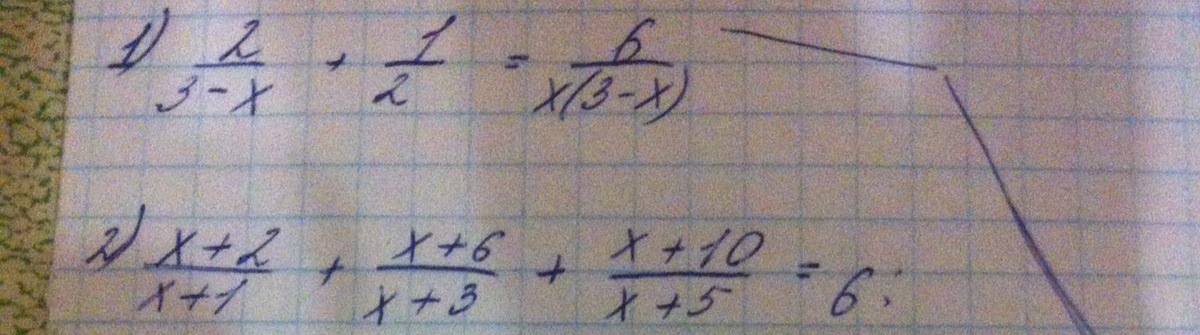 1) 2/(3-x) + 1/2 = 6/(x(3-x))
2) (x+2)/(x+1) + (x+6)/(x+3) + (x+10)/(x+5) = 6;